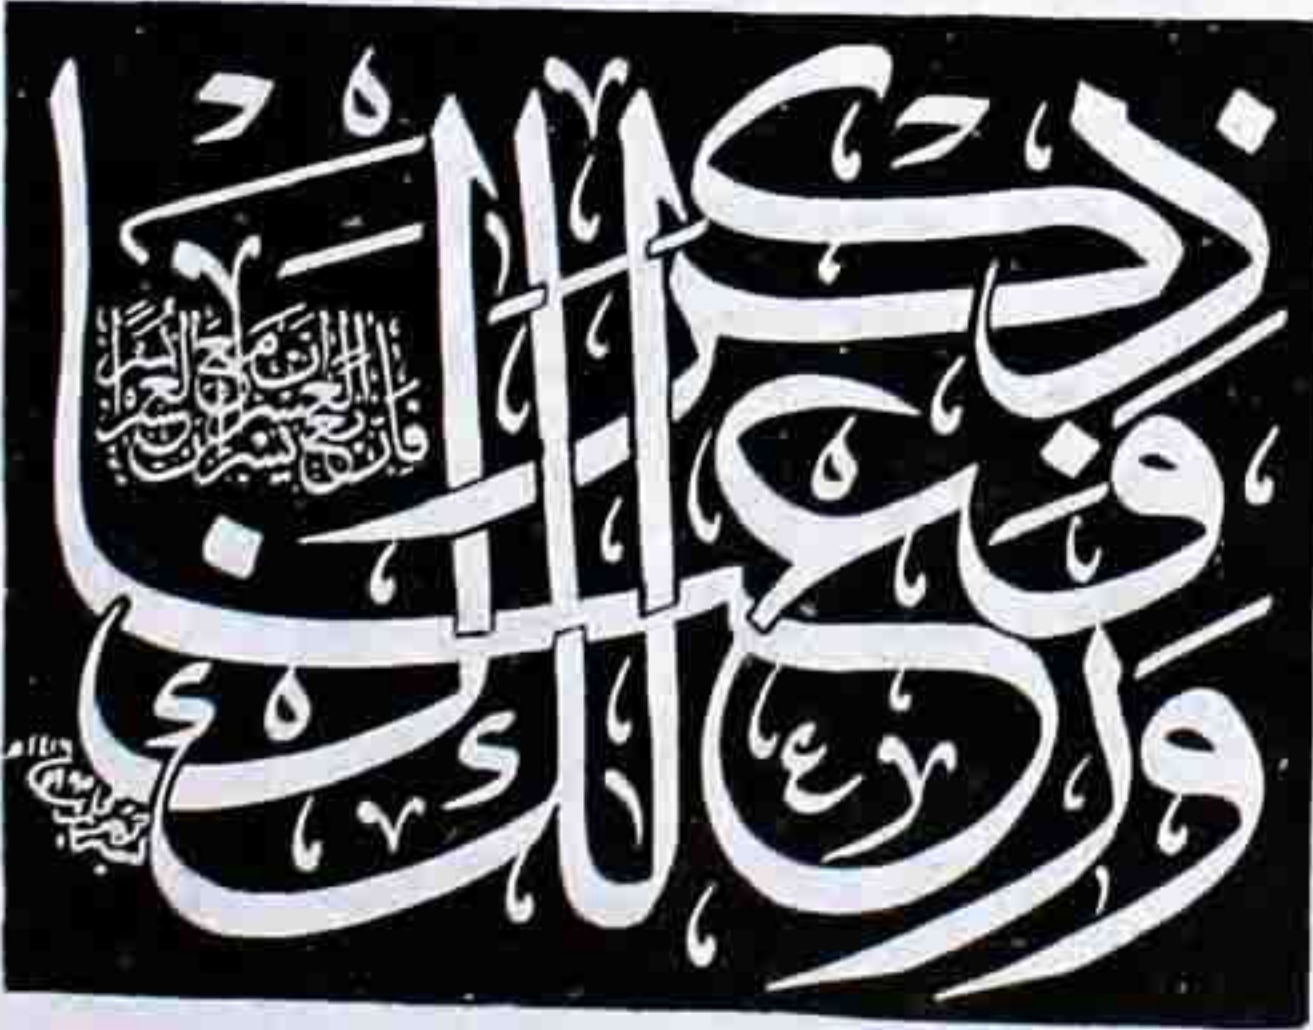 وَرَفَعْنَا لَكَ ذِكْرَكَ
فَإِنَّ مَعَ الْعُسْرِ يُسْرًا إِنَّ مَعَ الْعُسْرِ يُسْرًا